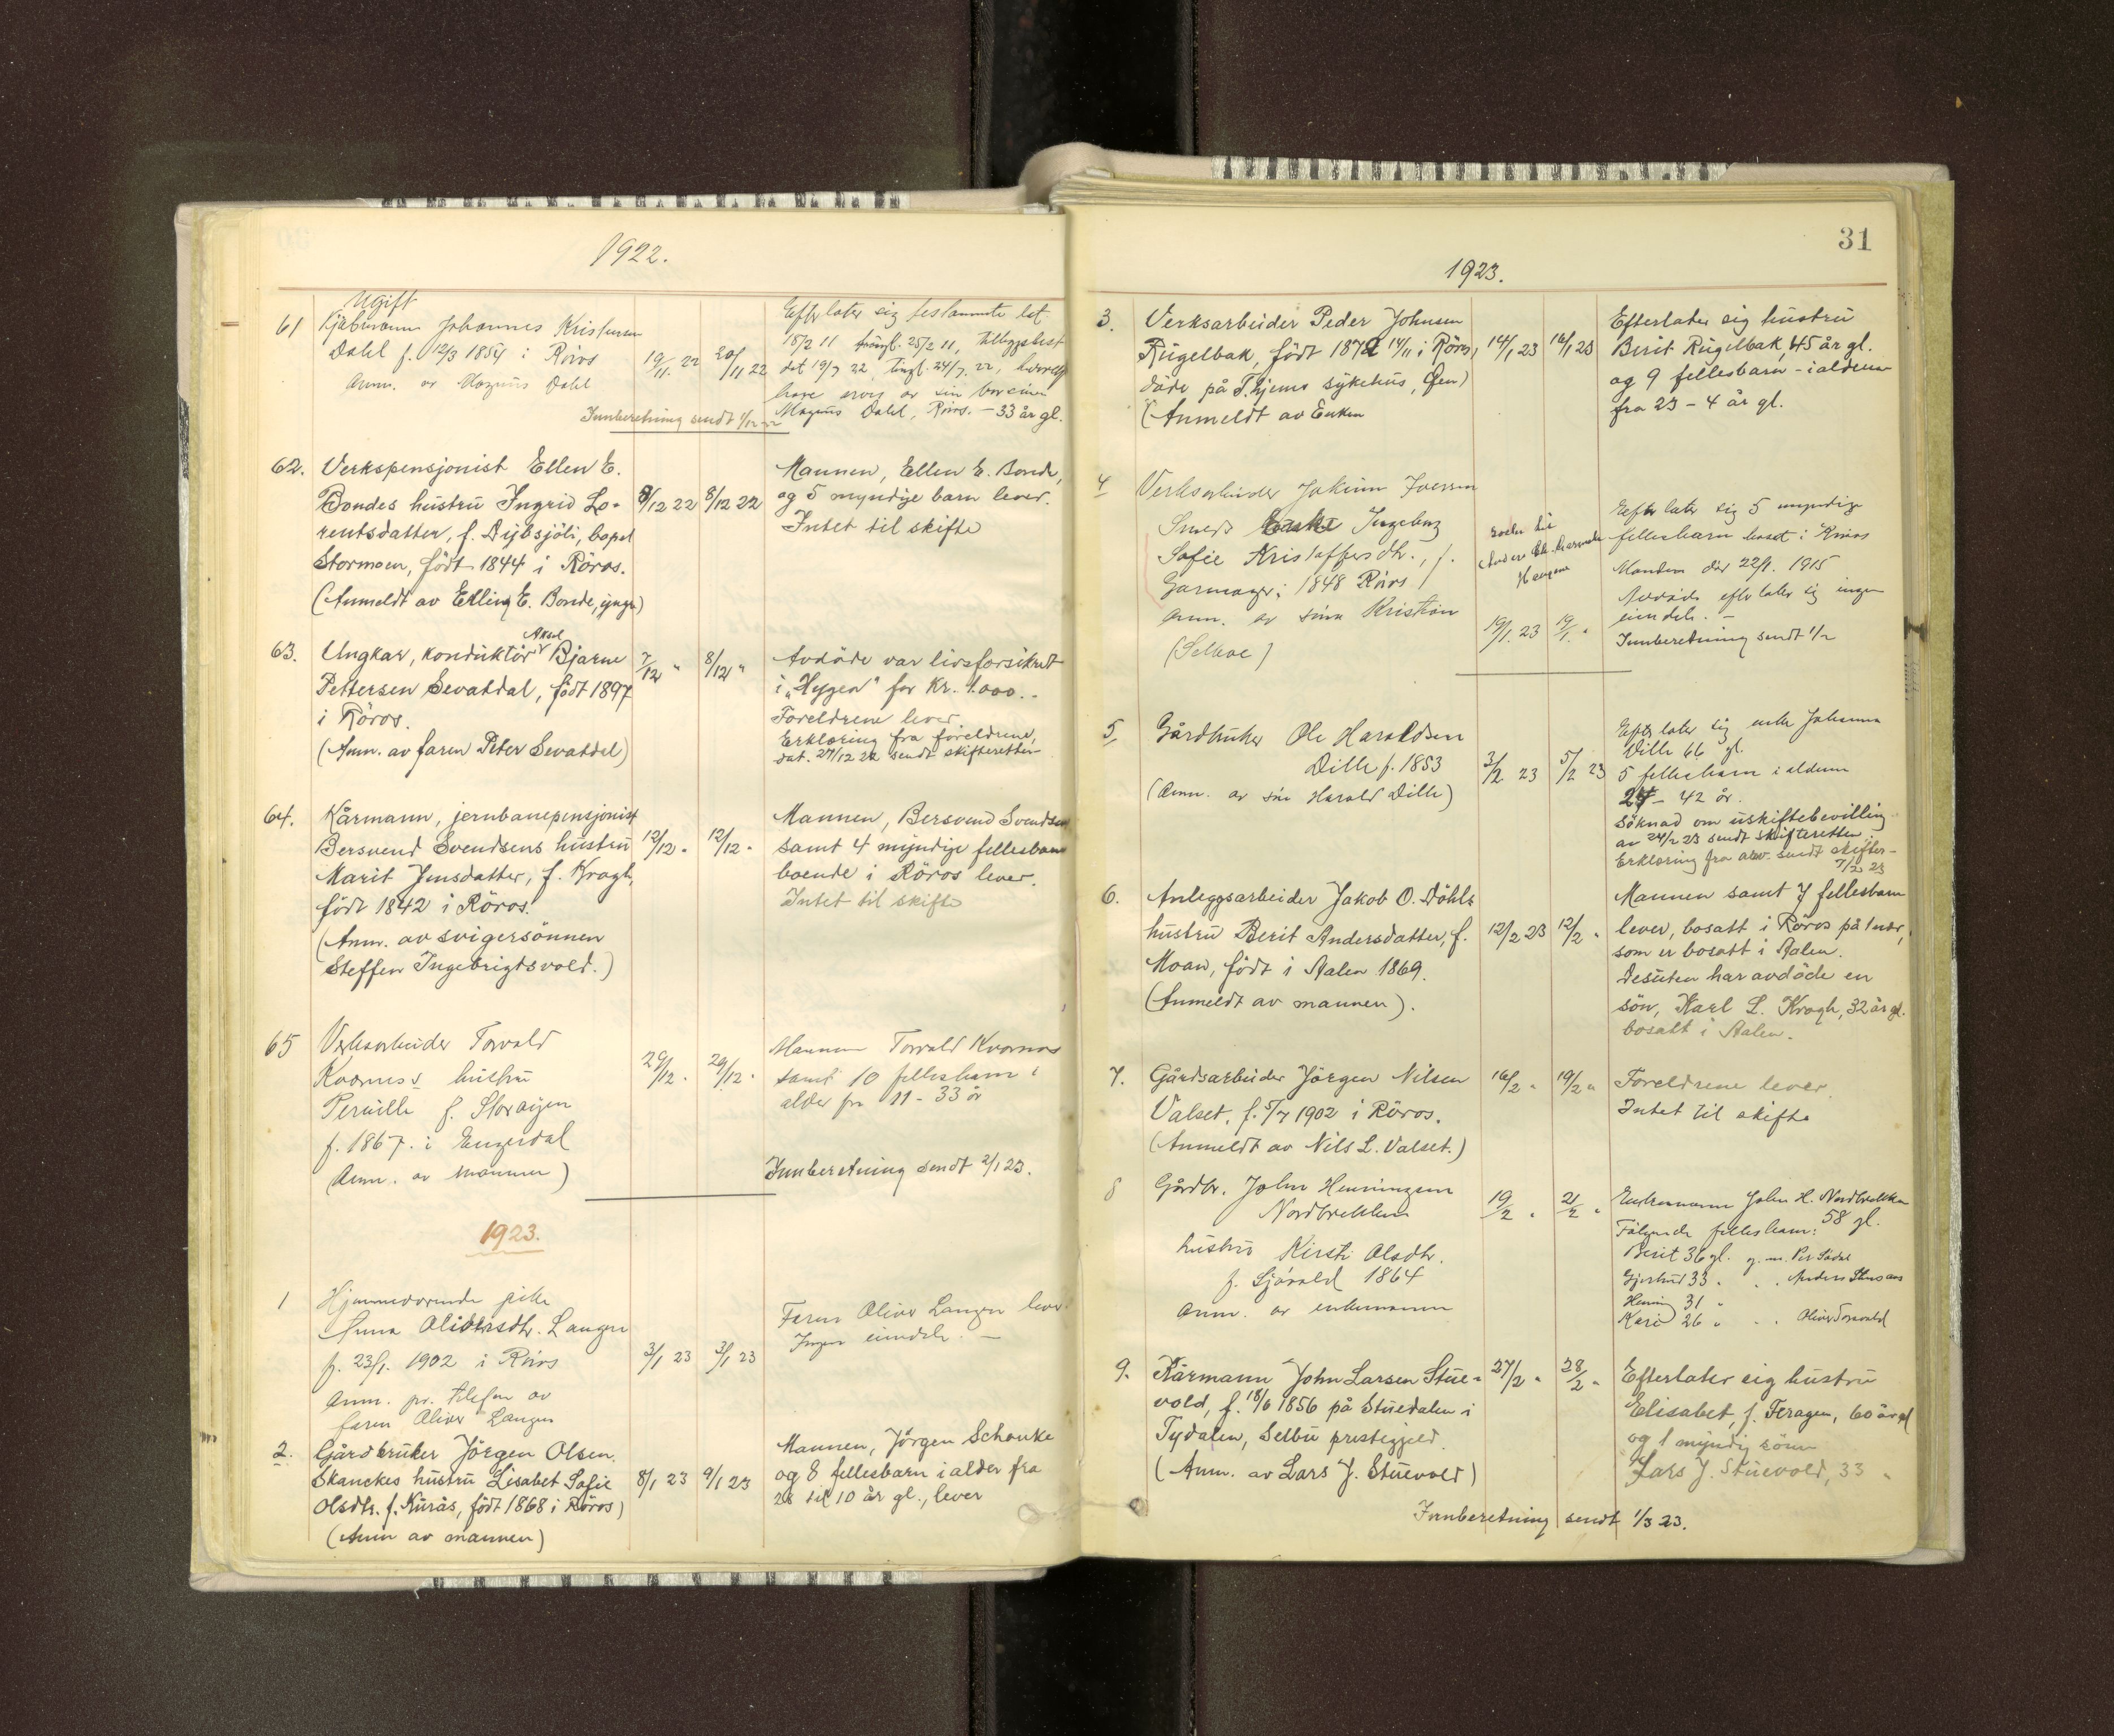 1922.
61
Ugift
Kjøbmann Johannes Kristensen
Dahl f. 12/3 1854 i Röros
Anm. av Magnus Dahl
19/11. 22
20/11 22
Efterlater sig testamente dat.
18/2 11 tingl. 25/2 11, tilleggstest.
dat 19/7 22, tingl. 24/7. 22,
have av sin
Magnus Dahl, Röros. – 33 år gl.
Innberetning sendt 1/12 22
62.
Verkspensjonist Ellen E.
Bondes hustru Ingrid Lo-
rentsdatter, f. Dybsjöli, bopel
Stormoen, födt 1844 i Röros.
(Anmeldt av Elling E. Bonde, yngre)
8/12 22
8/12 22
Mannen, Ellen E. Bonde,
og 5 myndige barn lever.
Intet til skifte
63.
Aksel
Ungkar, konduktör Bjarne
Pettersen Sevatdal, födt 1897
i Röros.
(Anm. av faren Peter Sevatdal)
7/12 "
8/12 "
Avdöde var livsforsikret
i "Hygea" for Kr. 1.000.-
Foreldrene lever
Erklæring fra foreldrene,
dat. 27/12 22 sendt skifteretten
64.
Kårmann, jernbanepensjonist
Bersvend Svendsens hustru
Marit Jensdatter, f. Kragh,
födt 1842 i Röros.
(Anm. av svigersönnen
Steffen Ingebrigtsvold.)
12/12 "
12/12 "
Mannen, Bersvend Svendsen
samt 4 myndige fellesbarn
boende i Röros lever.
Intet til skifte
65
Verksarbeider Torvald
Kvernes's hustru
Pernille f. Storeien
f. 1867. i Engerdal
(Anm. av mannen)
29/12 "
29/12 "
Mannen Torvald Kvernes
samt 10 fellesbarn i
alder fra 11 - 33 år
Innberetning sendt 2/1 23.
1923.
1
Hjemmeværende pike
Anna Oliversdtr. Langen
f. 23/1. 1902 i Röros
Anm. pr. telefon av
faren Oliver Langen
3/1 23
3/1 23
Faren Oliver Langen lever.
Ingen eiendele. –
2.
Gårdbruker Jörgen Olsen
Skanckes hustru Lisabet Sofie
Olsdtr. f. Kurås, födt 1868 i Röros)
(Anm av mannen)
8/1 23
9/1 23
Mannen, Jörgen Schanke
og 8 fellesbarn i alder fra
28 til 10 år gl., lever
31
1923.
3.
Verksarbeider Peder Johnsen
Rugelbak, födt 1872 14/11 i Röros,
döde på T.hjems sykehus,
(Anmeldt av Enken
14/1 23
16/1 23
Efterlater sig hustru
Berit Rugelbak, 45 år gl.
og 9 fellesbarn – i alderen
fra 23 – 4 år gl.
4
Verksarbeider Jokum Iversen
Smeds Enke Ingeborg
Sofie Kristoffersdtr., f.
i 1848 Röros
Anm. av sönn Kristian
(Selboe)
19/1. 23
19/1. "
Efterlater sig 5 myndige
fellesbarn bosat i Röros
Manden död 22/1. 1915
Avdöde efterlater sig ingen
eiendele. –
Innberetning sendt 1/2
5
Gårdbruker Ole Haraldsen
Dille f. 1853
(Anm. av sön Harald Dille)
3/2 23
5/2 23
Efterlater sig enke Johanna
Dille 66 gl.
5 fellesbarn i alderen
24 – 42 år.
Söknad om uskiftebevilling
av 24/2 23 sendt skifteretten.
Erklæring fra sendt skifter-
7/2 23
6.
Anleggsarbeider Jakob O. Döhls
hustru Berit Andersdatter, f.
Moan, födt i Aalen 1869.
(Anmeldt av mannen).
12/2 23
12/2 "
Mannen samt 7 fellesbarn
lever, bosatt i Röros på 1 nær,
som er bosatt i Aalen.
Desuten har avdöde en
sön, Karl L. Kragh, 32 år gl.
bosatt i Aalen.
7.
Gårdsarbeider Jörgen Nilsen
Valset, f. 5/7 1902 i Röros.
(Anmeldt av Nils L. Valset.)
16/2 "
19/2 "
Foreldrene lever
Intet til skifte
8
Gårdbr. John Henningsen
Nordbrekken
hustru Kirsti Olsdtr.
f. Sjövold 1864
Anm. av enkemannen
19/2 "
21/2 "
Enkemann John H. Nordbrekken
58 gl.
Fölgende fellesbarn:
Berit 36 gl. g. m. Per
Gjertrud 33 " " Anders
Hening 31 "
Kari 26 " " Oliver Torsvold
9.
Kårmann John Larsen Stue-
vold, f. 18/6 1856 på Stuedalen i
Tydalen, Selbu prestegjeld.
(Anm. av Lars J. Stuevold)
27/2 "
28/2 "
Efterlater sig hustru
Elisabet, f. Feragen, 60 år gl
og 1 myndig sönn
Lars J. Stuevold, 33 "
Innberetning sendt 1/3 23.